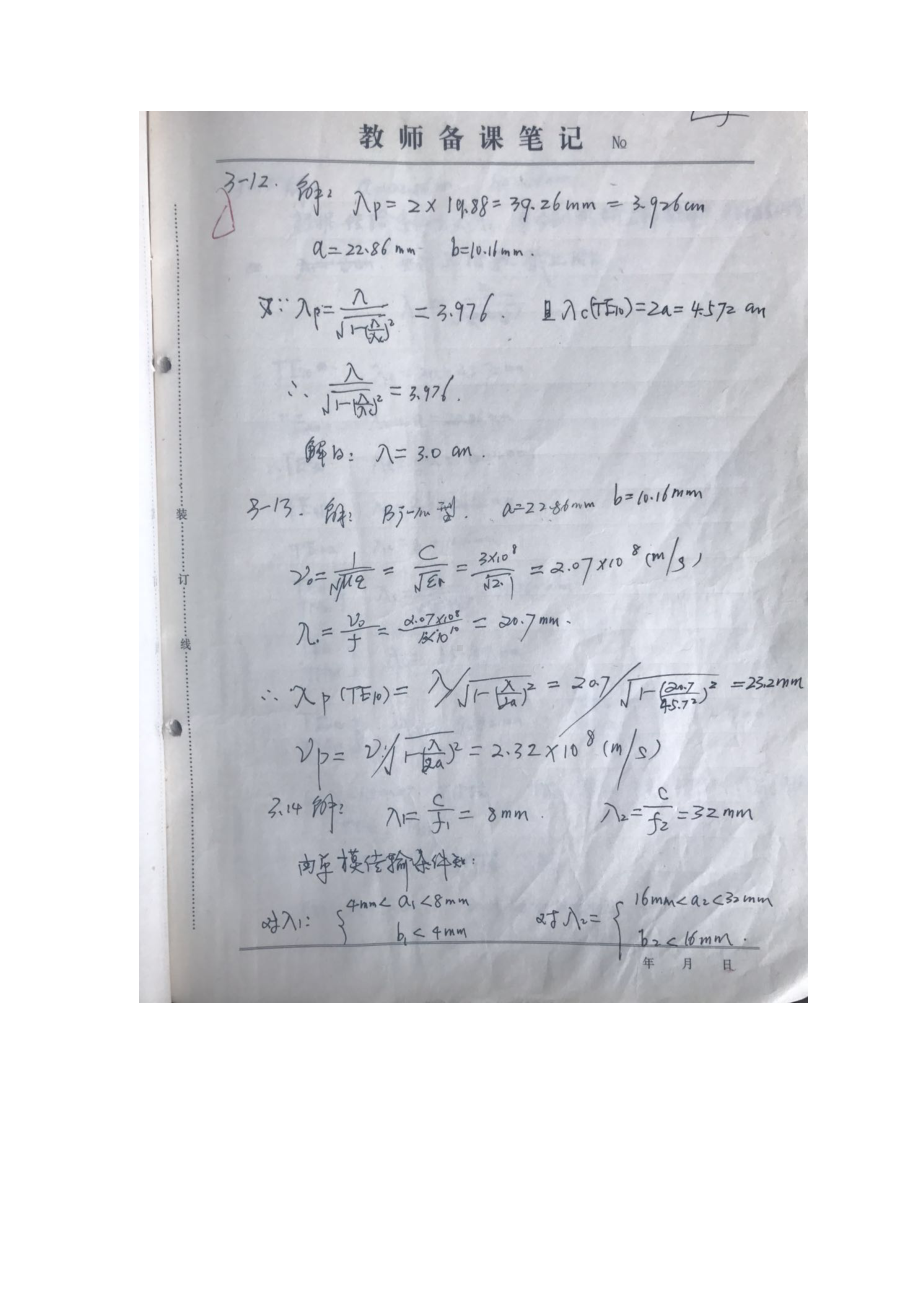 教师备课笔记 No
3-12. 解: λp = 2 × 19.88 = 39.26mm = 3.926cm
a=22.86mm b=10.16mm.
又∵ λp = λ/√(1-(λ/λc)²) = 3.976. 且 λc(TE10)=2a=4.572 cm
∴ λ/√(1-(λ/λc)²) = 3.976.
解得: λ = 3.0 cm.
3-13. 解: BJ-100型. a=22.86mm b=10.16mm
v₀ = 1/√με = C/√εr = 3×10⁸/√2.1 = 2.07×10⁸ (m/s)
λ₀ = v₀/f = 2.07×10⁸/10¹⁰ = 20.7mm.
∴ λp(TE10) = λ/√(1-(λ/2a)²) = 20.7/√(1-(20.7/45.72)²) = 23.2mm
vp = v/√(1-(λ/2a)²) = 2.32×10⁸ (m/s)
3.14 解: λ₁ = c/f₁ = 8mm. λ₂ = c/f₂ = 32mm
由单模传输条件知:
对λ₁: { 4mm<a₁<8mm b₁<4mm 对λ₂= { 16mm<a₂<32mm b₂<16mm.
年 月 日
装
订
线